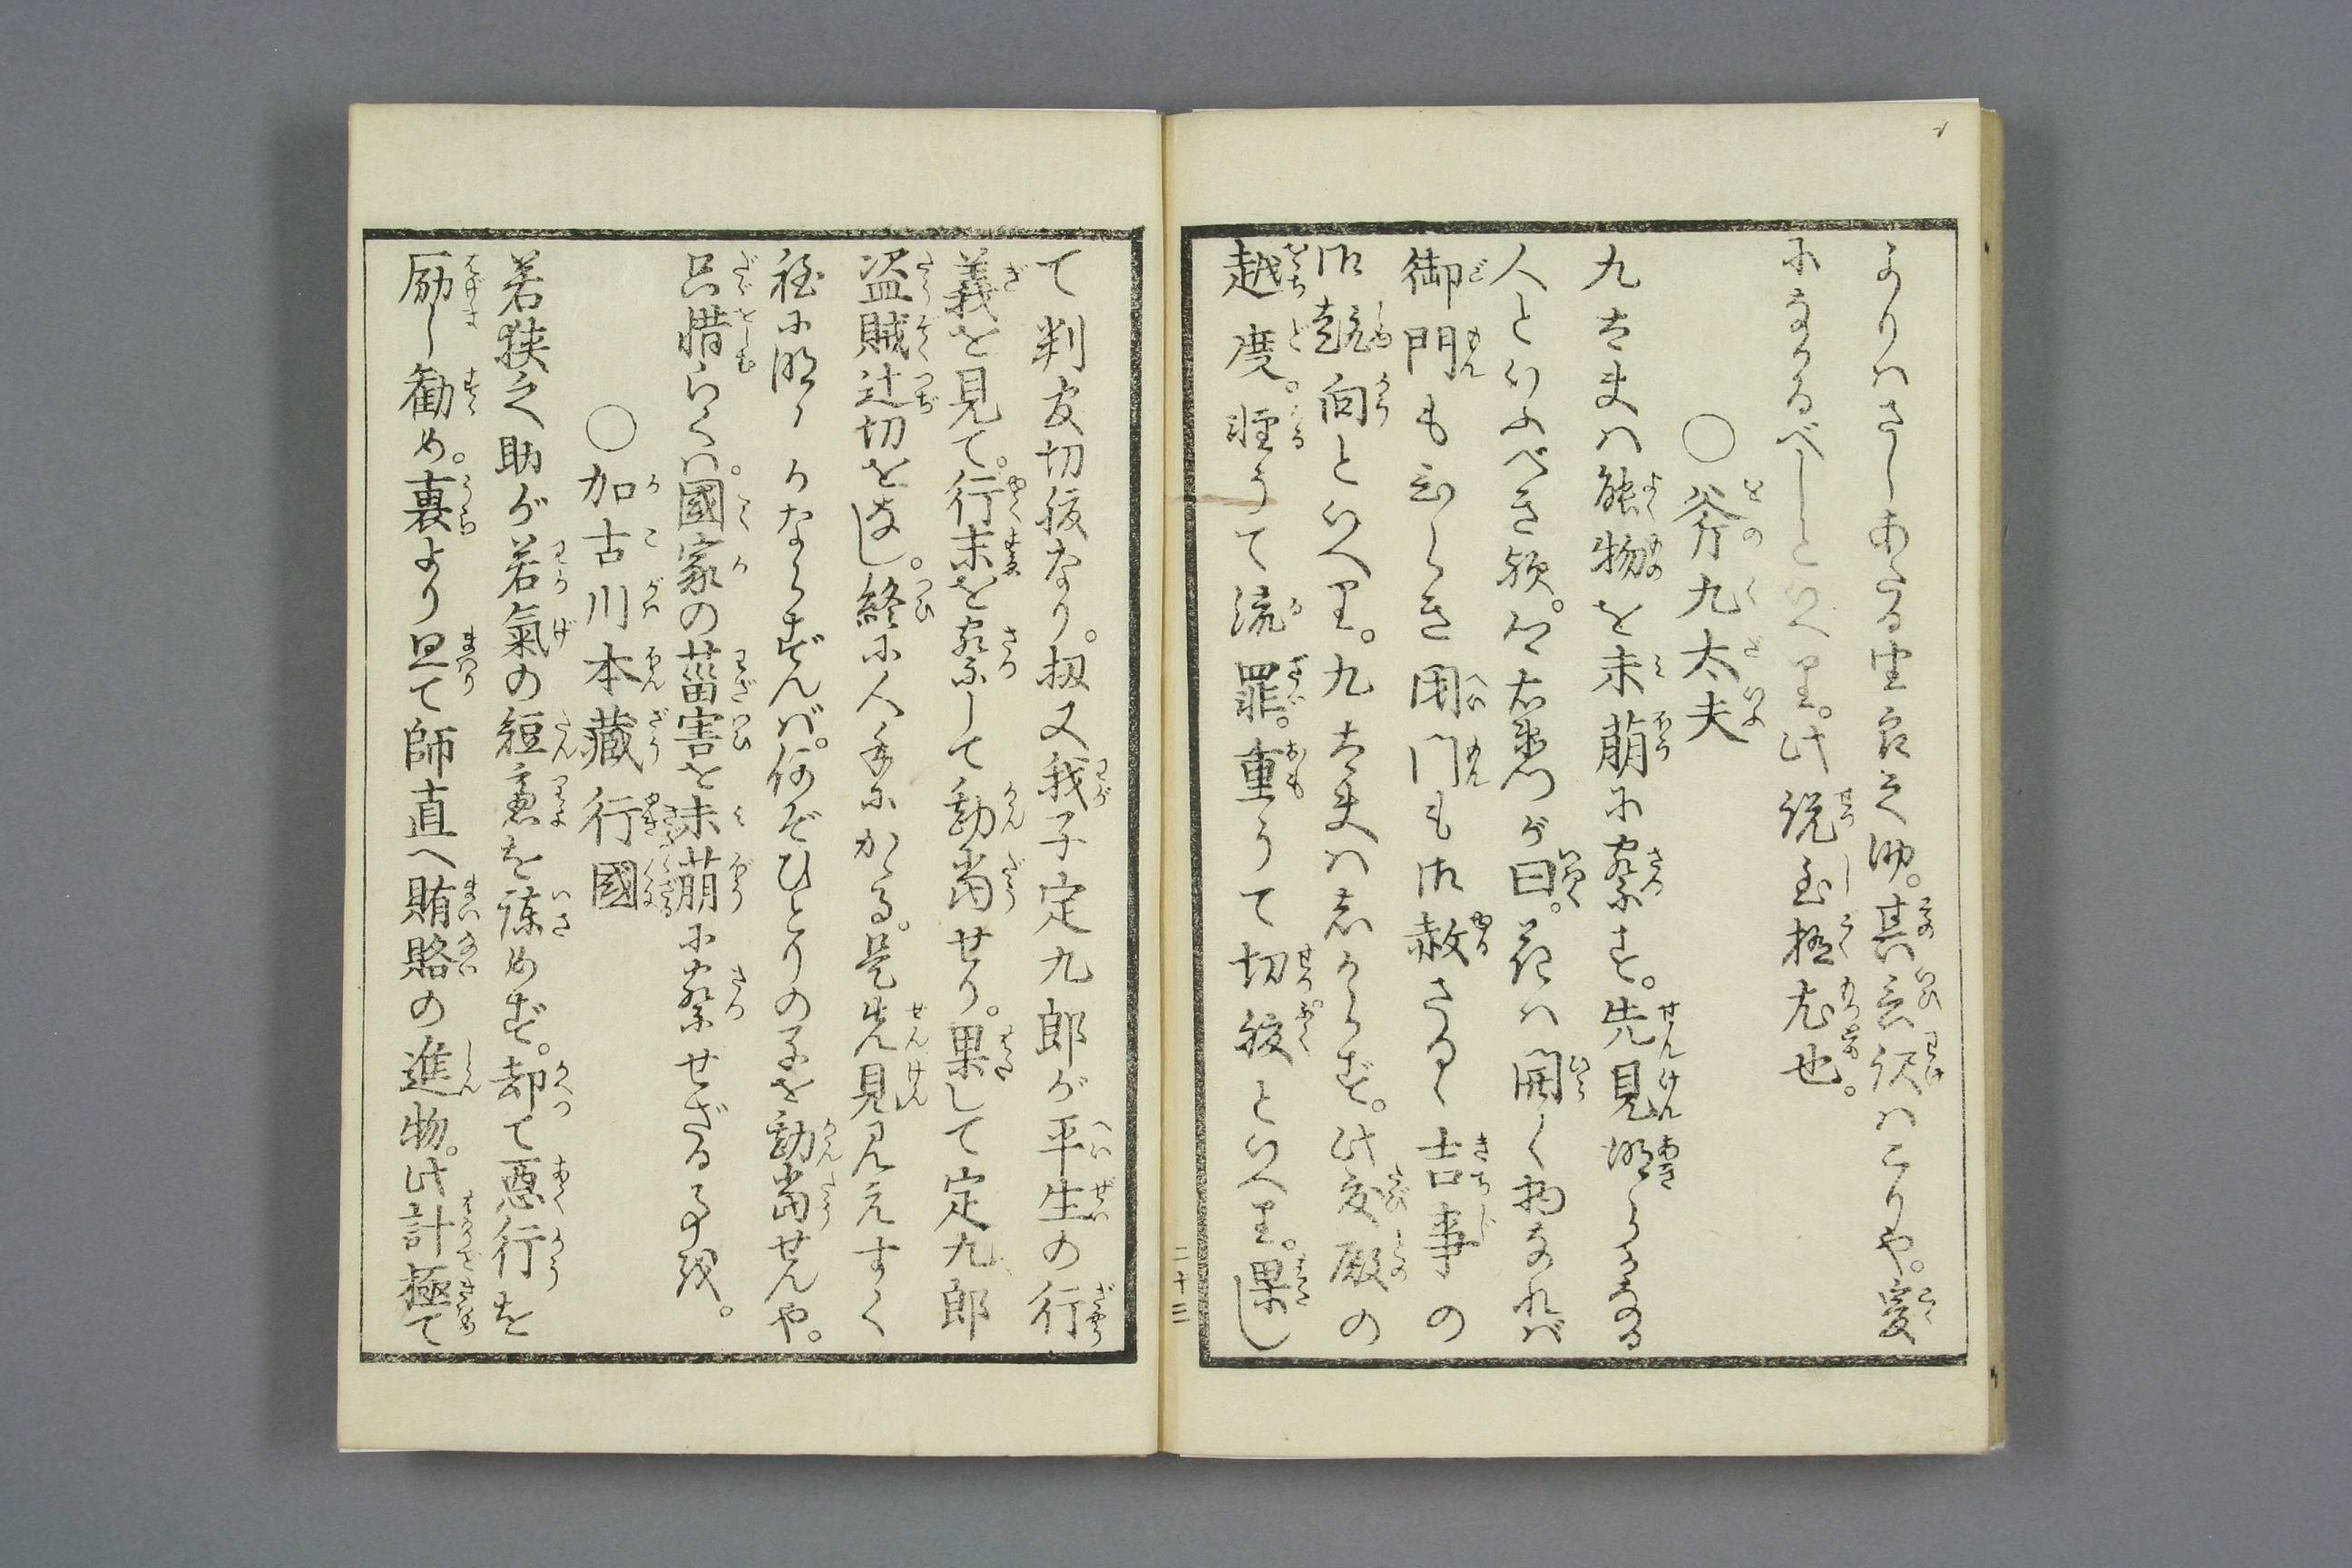 よりハさしあたる由良之助。其言訳ハこりや。爰
にあるべしといへり。此説至極尤也。
○斧九太夫
九太夫ハ能物を未萌に察す。先見明らかなる
人といふべき歟。が曰。花ハ開く物なれバ
御門も開き閉門も御赦さるゝ吉事の
御趣向といへり。九太夫ハ志からず。此度殿の
越度。軽うて流罪。重うて切腹といへり。果し
て判官切腹なり。扨又我子定九郎が平生の行
義を見て。行末を察して勘当せり。果して定九郎
盗賊辻切をなし。終に人手にかゝる。是先見見えすく
程に明らかならずんバ。何ぞひとりの子を勘当せんや。
只惜らくハ。國家の葘害を未萌に察せざる事哉。
○加古川本藏行國
若狭之助が若氣の短慮を諫めず。却て悪行を
励し勧め。裏より廻て師直へ賄賂の進物。此計極て
二十三